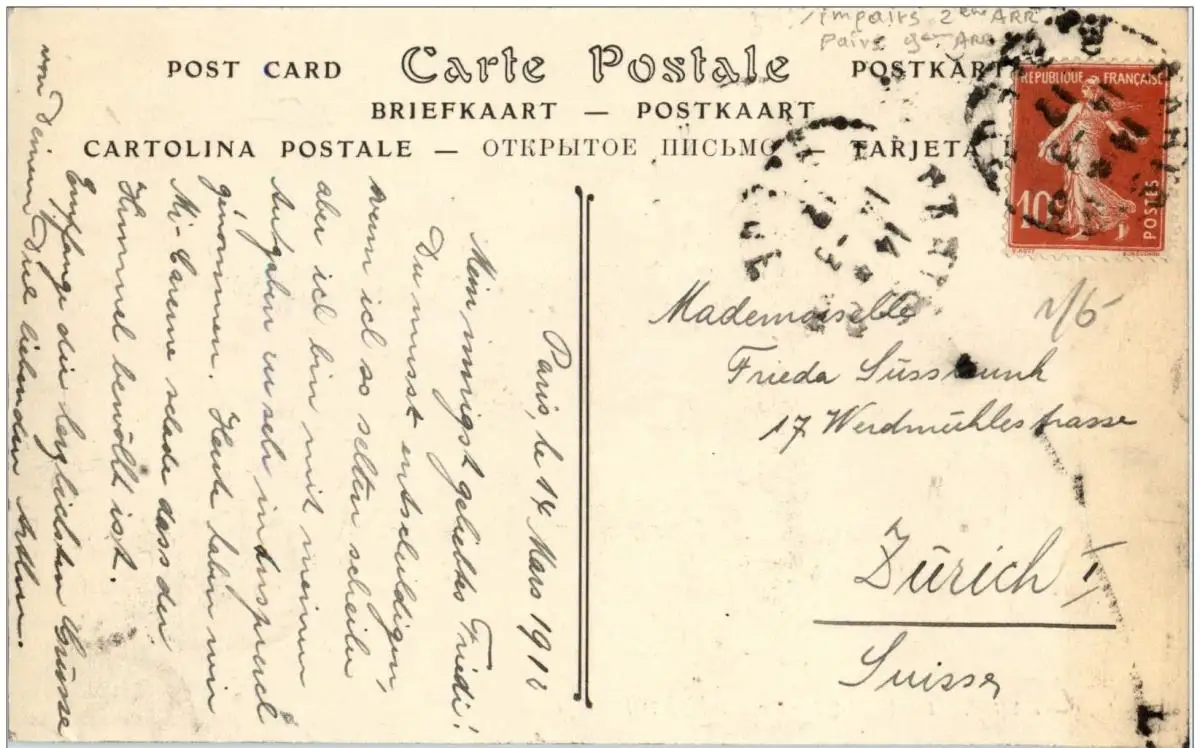 impairs 2eme ARR
Pairs 9eme ARR
POST CARD Carte Postale POSTKARTE
BRIEFKAART — POSTKAART
CARTOLINA POSTALE — ОТКРЫТОЕ ПИСЬМО — TARJETA
RÉPUBLIQUE FRANÇAISE
10
POSTES
Paris, le 14 Mars 191
Mein innigst geliebtes Friedi!
Du musst entschuldigen,
wenn ich so selten schreibe
aber ich bin mit meinen
Aufgaben zu sehr in Anspruch
genommen. Heute haben wir
Mi-Carême schade dass der
Himmel bewölkt ist.
Empfange die herzlichsten Grüsse
von Deinem Dich liebenden
Mademoiselle
Frieda Süsstrunk
17 Werdmühlestrasse
Zürich I
Suisse